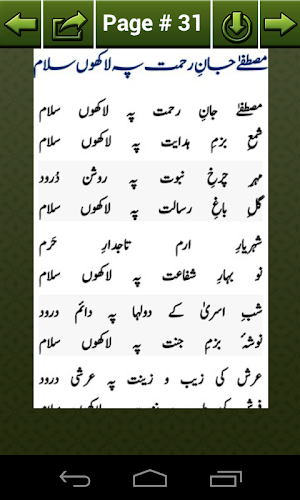 Page # 31
مصطفےٰ جانِ رحمت پہ لاکھوں سلام
مصطفےٰ جانِ رحمت پہ لاکھوں سلام
شمعِ بزمِ ہدایت پہ لاکھوں سلام
مہرِ چرخِ نبوت پہ روشن دُرود
گلِ باغِ رسالت پہ لاکھوں سلام
شہریارِ ارم تاجدارِ حَرم
نو بہارِ شفاعت پہ لاکھوں سلام
شبِ اسریٰ کے دولہا پہ دائم درود
نوشۂ بزمِ جنت پہ لاکھوں سلام
عرش کی زیب و زینت پہ عرشی درود